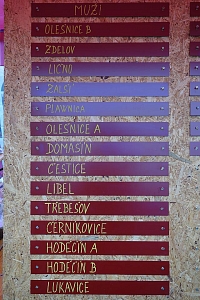 MUŽI
OLEŠNICE B
ZDELOV
LÍČNO
ZÁLŠÍ
PLAVNICA
OLEŠNICE A
DOMAŠÍN
ČESTICE
LIBEL
TŘEBEŠOV
ČERNÍKOVICE
HODEČÍN A
HODEČÍN B
LUKAVICE